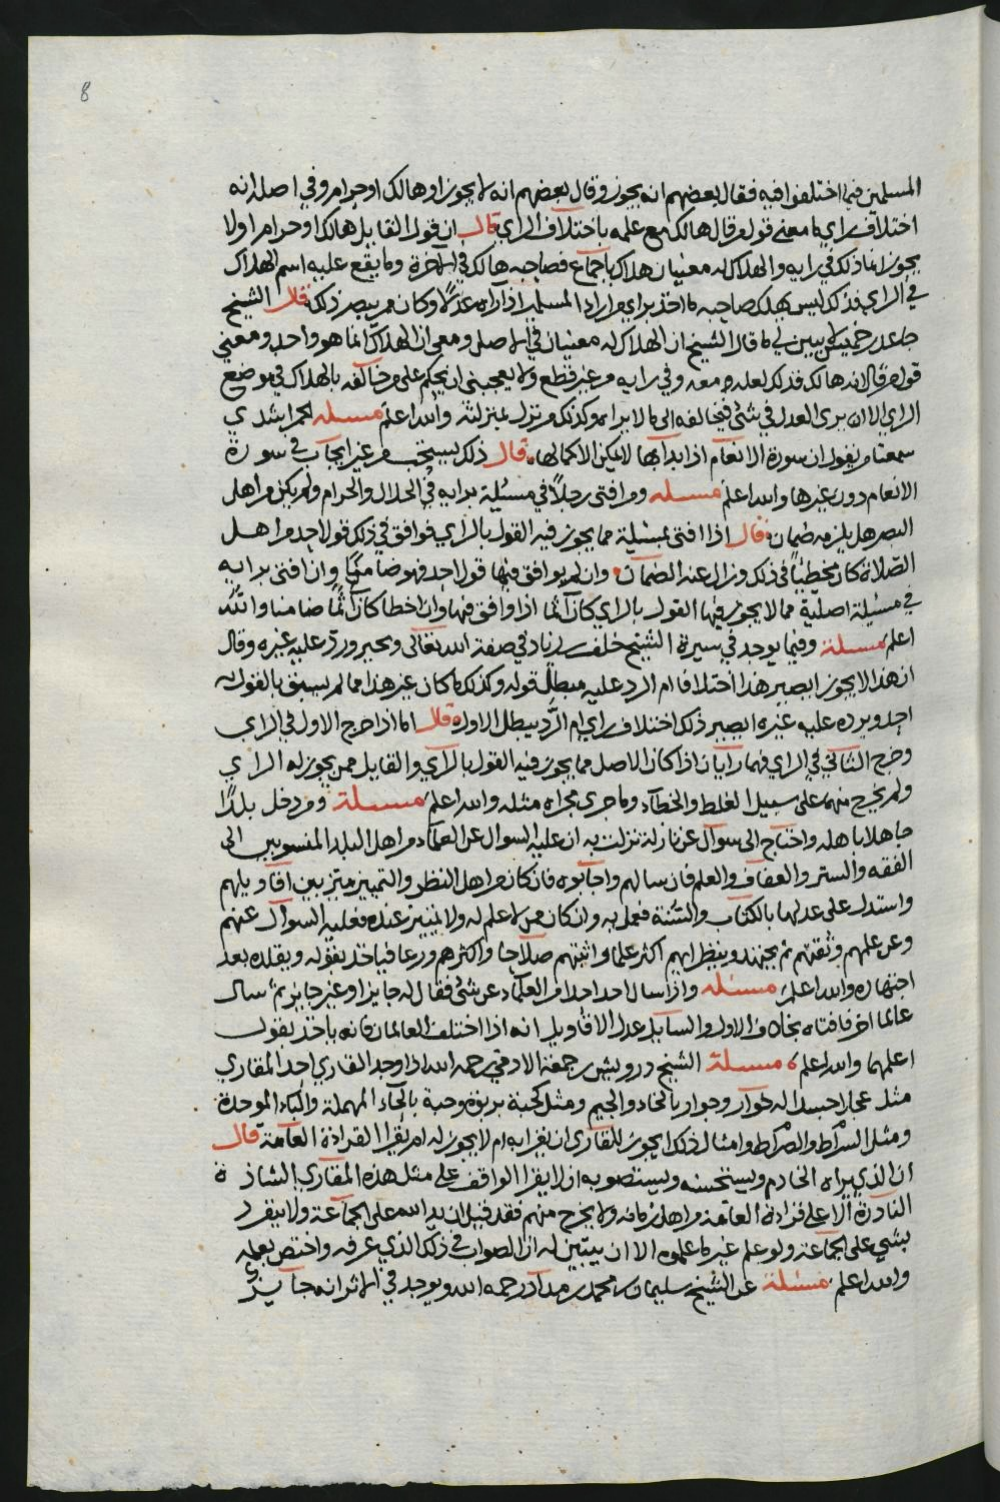 8
المسلمين فيما اختلفوا فيه فقال بعضهم انه يجوز وقال بعضهم انه لا يجوز او هالك او حرام وفي اصله انه
اختلاف راي ما معنى قول من قال هالك مع علمه باختلاف الراي قال ان قول القايل هالك او حرام او لا
يجوز انما ذلك في رايه والهلاك له معنيان هلاك باجماع فصاحبه هالك في الآخرة وما يقع عليه اسم الهلاك
في الراي فذلك ليس يهلك صاحبه ما اخذ براي من اراء المسلمين اذا راه عدلا وكان ممن يبصر ذلك قال الشيخ
جاعد بن خميس لم يبين لي ما قال الشيخ ان الهلاك له معنيان في الاصل ومعي ان الهلاك انما هو واحد ومعنى
قول من قال انه هالك فذلك لعله معه وفي رايه من غير قطع ولا يعجبني ان يحكم على من خالفه بالهلاك في موضع
الراي الا ان يرى العدل في شئ فيخالفه الى ما لا يراه وكذلك من نزل بمنزلته والله اعلم مسئلة الحمراشدي
سمعنا من يقول ان سورة الانعام اذا بدأ بها لا يمكن الا كمالها قال ذلك يستحب من غير ايجاب في سورة
الانعام دون غيرها والله اعلم مسئلة ومن افتى رجلاً في مسئلة برايه في الحلال والحرام ولم يكن من اهل
البصر هل يلزمه ضمان قال اذا افتى بمسئلة مما يجوز فيه القول بالراي فوافق في ذلك قول احد من اهل
الصلاة كان مخطيا في ذلك وزال عنه الضمان وان لم يوافق فيها قول احد فهو ضامن وان افتى برايه
في مسئلة اصلية مما لا يجوز فيها القول بالراي كان آثما اذا وافق فيها وان اخطا كان آثما ضامنا والله
اعلم مسئلة وفيما يوجد في سيرة الشيخ خلف بن زياد في صفة الله تعالى ورد عليه غيره وقال
ان هذا لا يجوز ايصير هذا اختلافا ام الرد عليه مبطل قوله وكذلك ما كان غير هذا مما لم يسبق بالقول به
احد ويرده عليه غيره ايصير ذلك اختلاف راي ام الرد يبطل الاول قال اما اذا خرج الاول في الراي
وخرج الثاني في الراي فهما رايان اذا كان الاصل مما يجوز فيه القول بالراي والقايل ممن يجوز له الراي
ولم يخرج منهما على سبيل الغلط والخطأ وما جرى مجراه مثله والله اعلم مسئلة ومن دخل بلدًا
جاهلا باهله واحتاج الى سوآل عن نازلة نزلت به ان عليه السوال عن العلمآء من اهل البلد المنسوبين الى
الفقه والستر والعفاف والعلم فان سالهم واجابوه فان كان من اهل النظر والتمييز ميز بين اقاويلهم
واستدل على عدلها بالكتاب والسنة فعمل به وان كان ممن لا علم له ولا تمييز عنده فعليه السوال عنهم
وعن علمهم وثقتهم ثم يجتهد وينظر ايهم اكثر علما واثبتهم صلاحا واكثرهم ورعا فياخذ بقوله ويقلده بعد
اجتهاده والله اعلم مسئله واذا سال احد احدا من العلمآء عن شئ فقال له جايز او غير جايز ثم سال
عالما اخر فافتاه بخلاف الاول والسايل عدل الاقاويل انه اذا اختلف العالمان فانه ياخذ بقول
اعلمهما والله اعلم مسئلة الشيخ درويش بن جمعة الادمي رحمه الله اذا وجد القاري احد المقاري
مثل عجلا جسدا له خوار وجوار بالخاء والجيم ومثل كجنة بربوة وحبة بالحآء المهملة والباء الموحدة
ومثل السراط والصراط وامثال ذلك ايجوز للقاري ان يقرا به ام لا يجوز له ام يقرا القراءة العامة قال
ان الذي يراه الخادم ويستحسنه ويستصوبه ان لا يقرا الواقف على مثل هذه المقاري الشاذة
النادرة الا على قراءة العامة من اهل زمانه ولا يخرج منهم فقد قيل ان يد الله على الجماعة ولا ينفرد
بشي على الجماعة ولو علم غير ما علموه الا ان يبين له ان الصواب في ذلك الذي عرفه واختص بعلمه
والله اعلم مسئلة عن الشيخ سليمان بن محمد بن مداد رحمه الله ويوجد في الاثر انه جايز